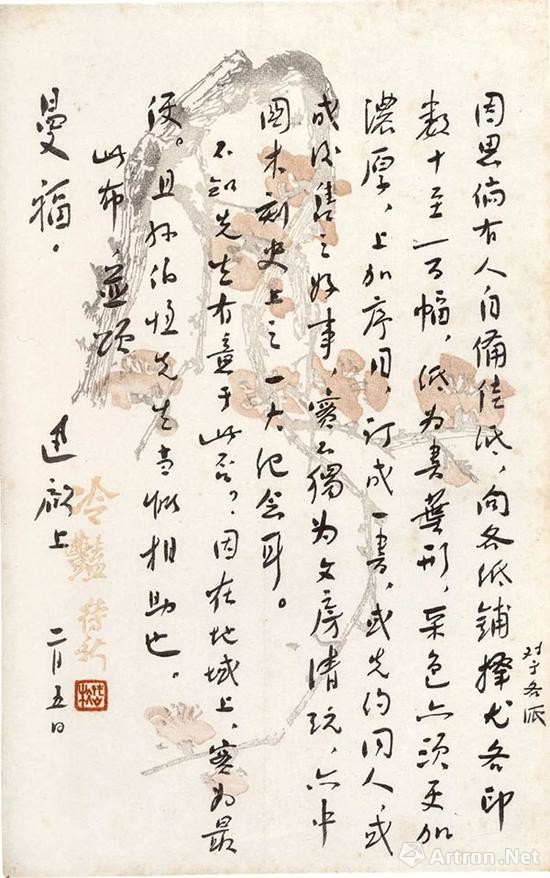 因思倘有人自备佳纸，向各纸铺择尤各印
对于各派
数十至一百幅，纸为书叶形，采色亦须更加
浓厚，上加序目，订成一书，或先约同人，或
成后售之好事，实不独为文房清玩，亦中
国木刻史上之一大纪念耳。
不知先生有意于此否？因在地域上，实为最
便。且孙伯恒先生当能相助也。
此布，並颂
曼福。
迅 顿上 二月五日
冷豔
Artron.Net